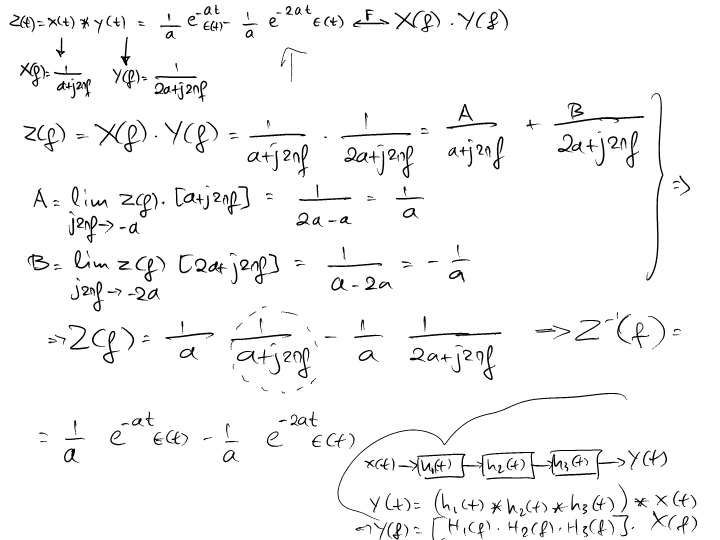 z(t) = x(t) * y(t) = 1/a e^-at ε(t) - 1/a e^-2at ε(t) ⟷F X(f) · Y(f)
X(f) = 1/(a+j2πf) Y(f) = 1/(2a+j2πf)
Z(f) = X(f) · Y(f) = 1/(a+j2πf) · 1/(2a+j2πf) = A/(a+j2πf) + B/(2a+j2πf)
A = lim Z(f) · [a+j2πf] = 1/(2a-a) = 1/a ⇒
j2πf → -a
B = lim Z(f) [2a+j2πf] = 1/(a-2a) = -1/a
j2πf → -2a
⇒ Z(f) = 1/a 1/(a+j2πf) - 1/a 1/(2a+j2πf) ⇒ Z^-1(f) =
= 1/a e^-at ε(t) - 1/a e^-2at ε(t)
x(t) → h₁(t) → h₂(t) → h₃(t) → Y(t)
Y(t) = (h₁(t) * h₂(t) * h₃(t)) * x(t)
Y(f) = [H₁(f) · H₂(f) · H₃(f)] · X(f)